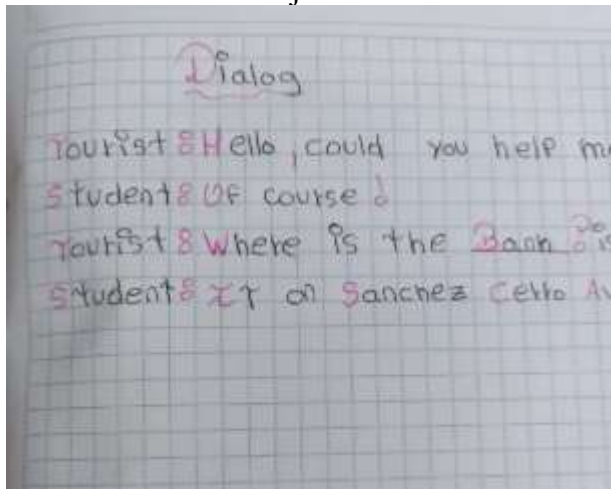 Dialog
Tourist : Hello, could you help me
Student : Of course!
Tourist : Where is the Bank De
Student : It on Sanchez Cerro Av